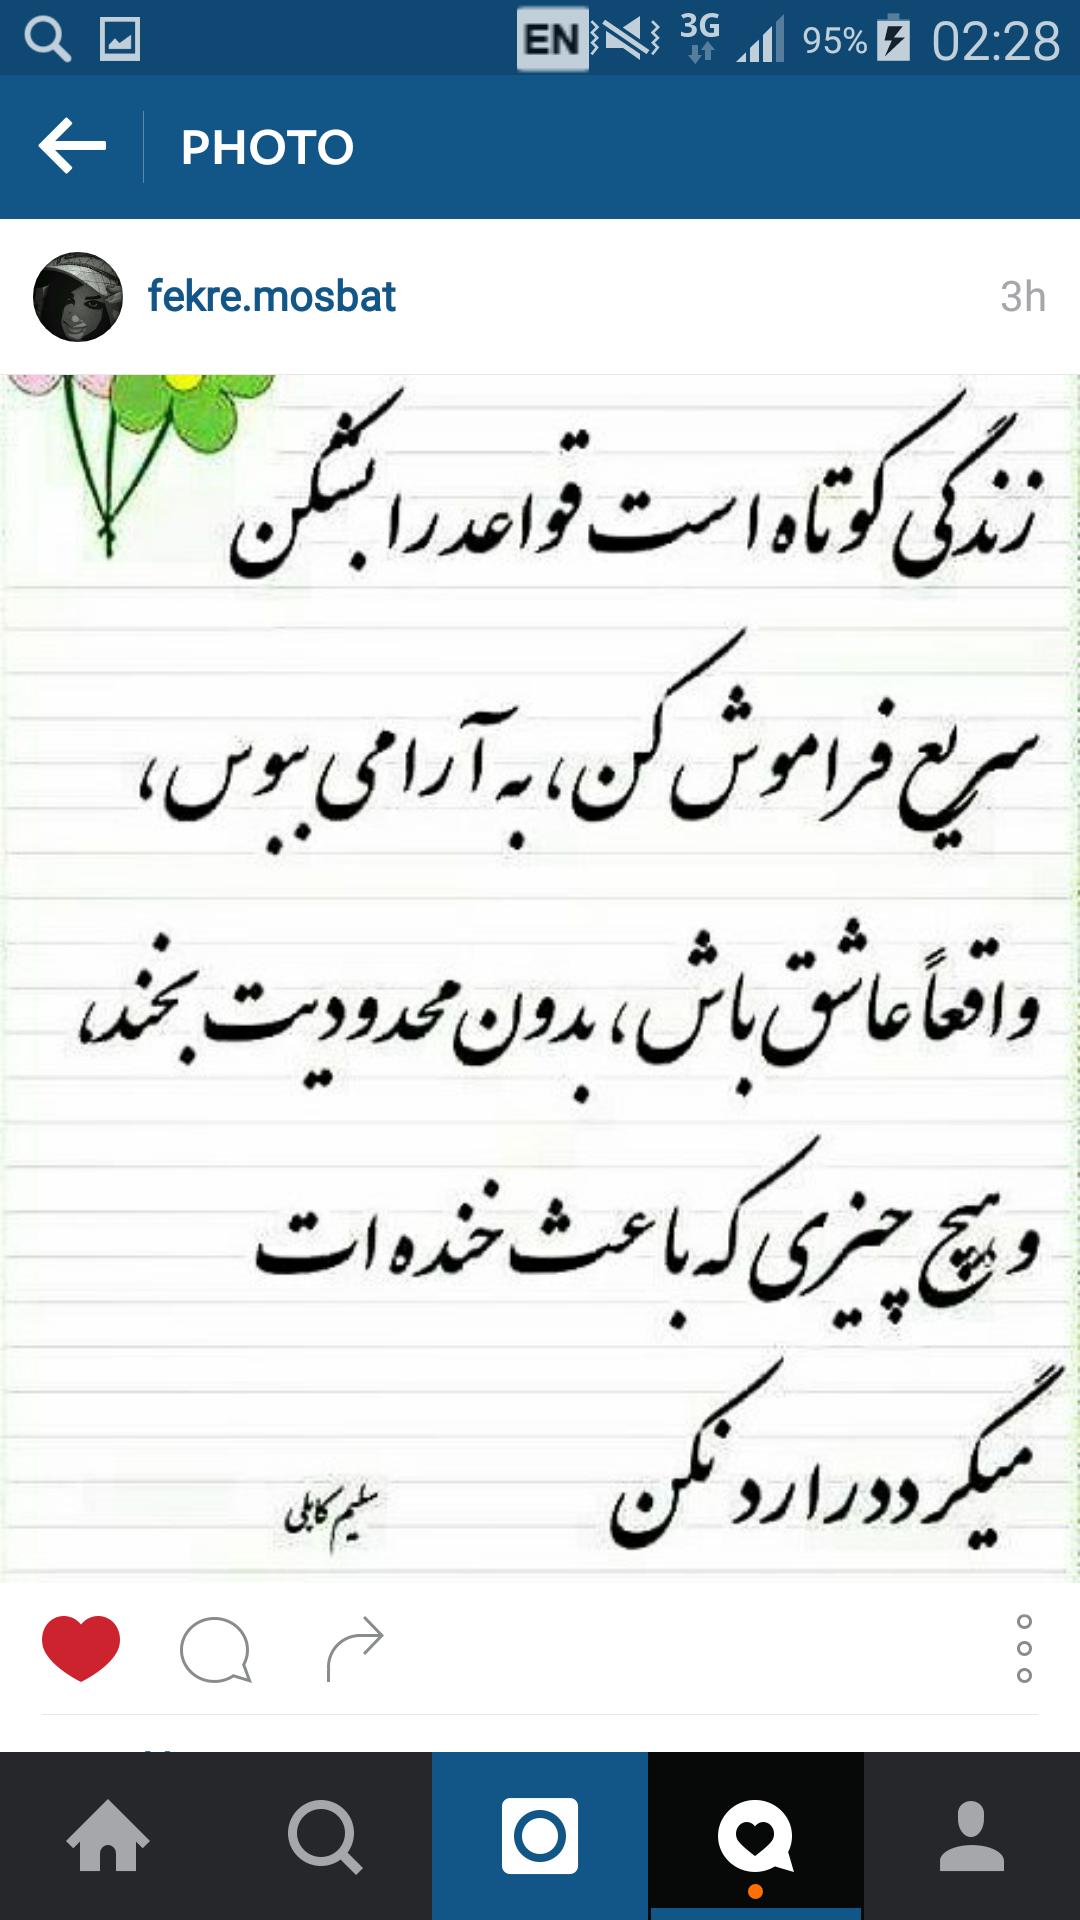 EN 3G 95% 02:28
PHOTO
fekre.mosbat 3h
زندگی کوتاه است قواعد را بشکن
سریع فراموش کن، به آرامی ببوس،
واقعاً عاشق باش، بدون محدودیت بخند،
و هیچ چیزی که باعث خنده ات
میگردد را رد نکن
سلیم کابلی